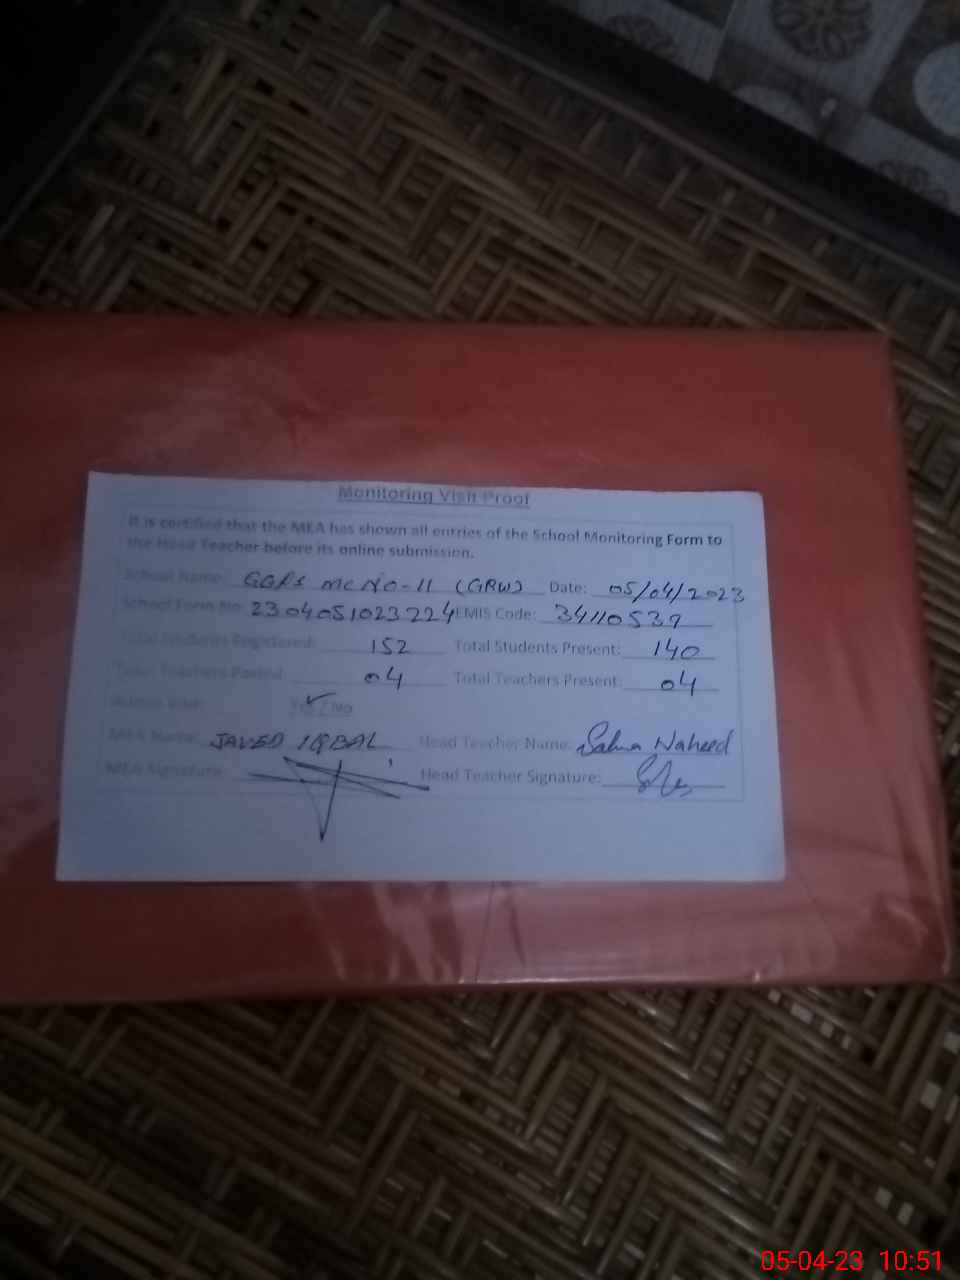 Monitoring Visit Proof
It is certified that the MEA has shown all entries of the School Monitoring Form to
the Head Teacher before its online submission.
School Name: GGPS MC NO-11 (GRW) Date: 05/04/2023
School Form No: 2304051023224 EMIS Code: 34110539
Total Students Registered: 152 Total Students Present: 140
Total Teachers Posted: 04 Total Teachers Present: 04
Yes / No
MEA Name: JAVED IQBAL Head Teacher Name: Salma Naheed
MEA Signature: Head Teacher Signature:
05-04-23 10:51